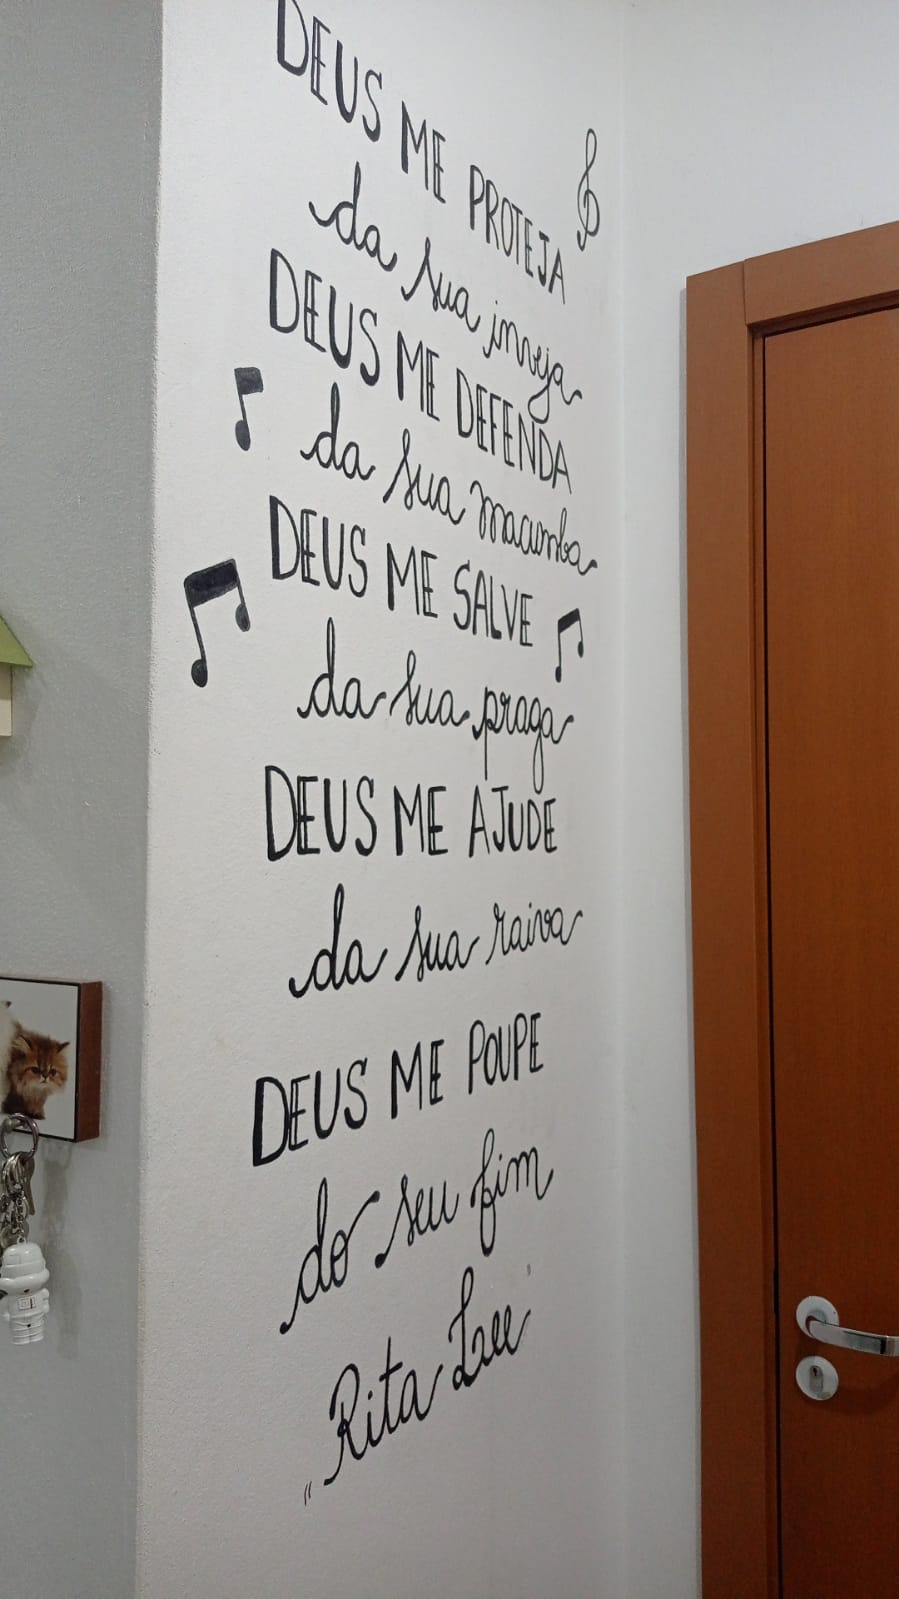 DEUS ME PROTEJA
da sua inveja
DEUS ME DEFENDA
da sua macumba
DEUS ME SALVE
da sua praga
DEUS ME AJUDE
da sua raiva
DEUS ME POUPE
do seu fim
"Rita Lee"